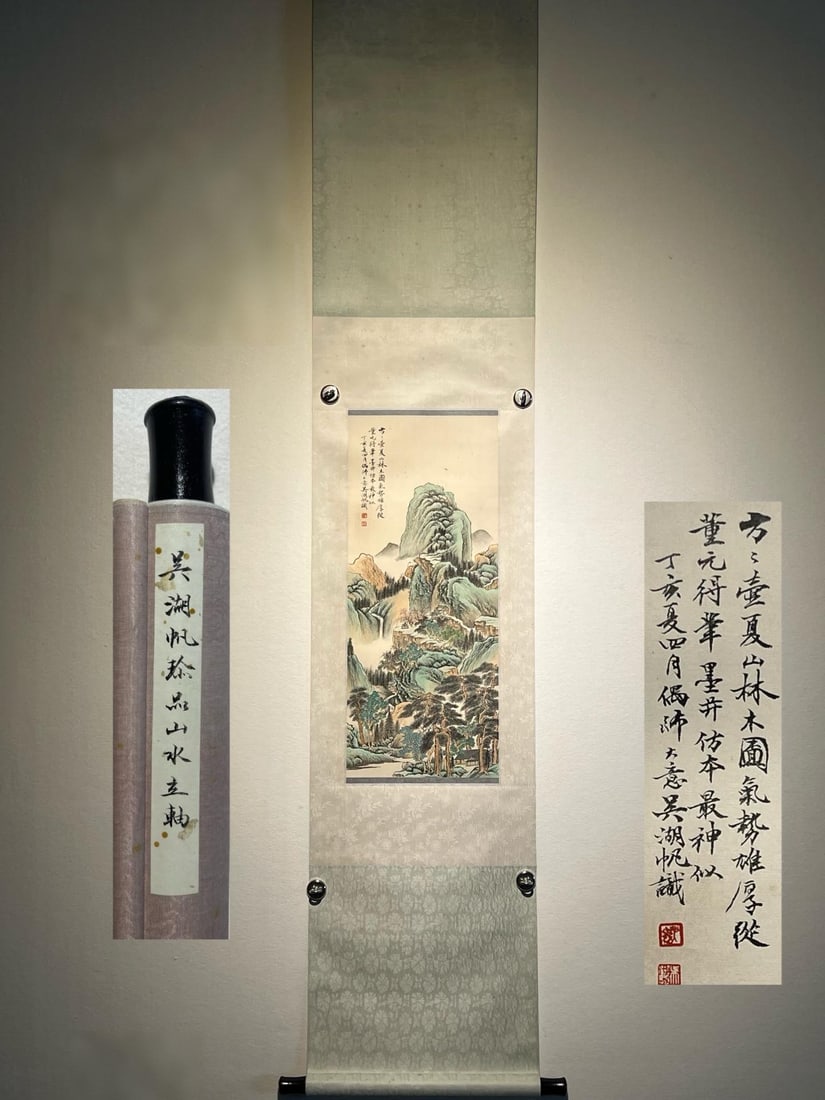 吴湖帆珍品山水立軸
方〻壺夏山林木圖氣勢雄厚從
董元得筆墨井仿本最神似
丁亥夏四月偶師大意吴湖帆識
方〻壺夏山林木圖氣勢雄厚從
董元得筆墨井仿本最神似
丁亥夏四月偶師大意吴湖帆識